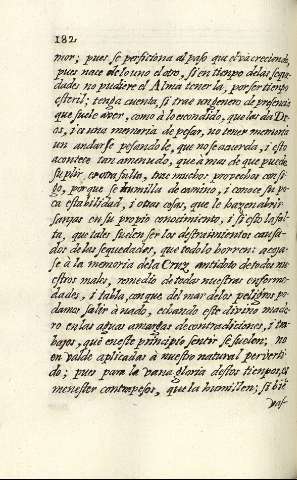 182
mor; pues se perficiona al paso que el va creciendo,
pues nace de lo uno el otro, si en tiempo de las seque
dades no pudiere el Alma tenerla, por ser tiempo
esteril; tenga cuenta, si trae un genero de presencia
que suele aver, como à lo escondido, que les da Di-
os, i a una memoria de pesar, no tener memoria
un andarse pesandole, que no se acuerda, i esto
acontece tan amenudo, que à mas de que puede
suplir, esotra falta, trae muchos provechos consi
go, porque se humilla de camino, i conoce su po
ca estabilidad, i otras cosas, que le hazen abrir
sanjas en su propio conocimiento, i si esto le fal
ta, que tales suelen ser los destruimientos causa
dos de las sequedades, que todo lo borren: acoja
se à la memoria de la Cruz, antidoto de todos nu
estros males, remedio de todas nuestras enferme-
dades, i tabla, con que del mar de los peligros po
damos salir à nado, echando este divino made
ro en las aguas amargas de contradiciones, i tra
bajos, que en este principio sentir se suelen; no
en valde aplicadas à nuestro natural perverti
do; pues para la vana gloria destos tiempos, es
menester contrapesos, que la humillen; si bie